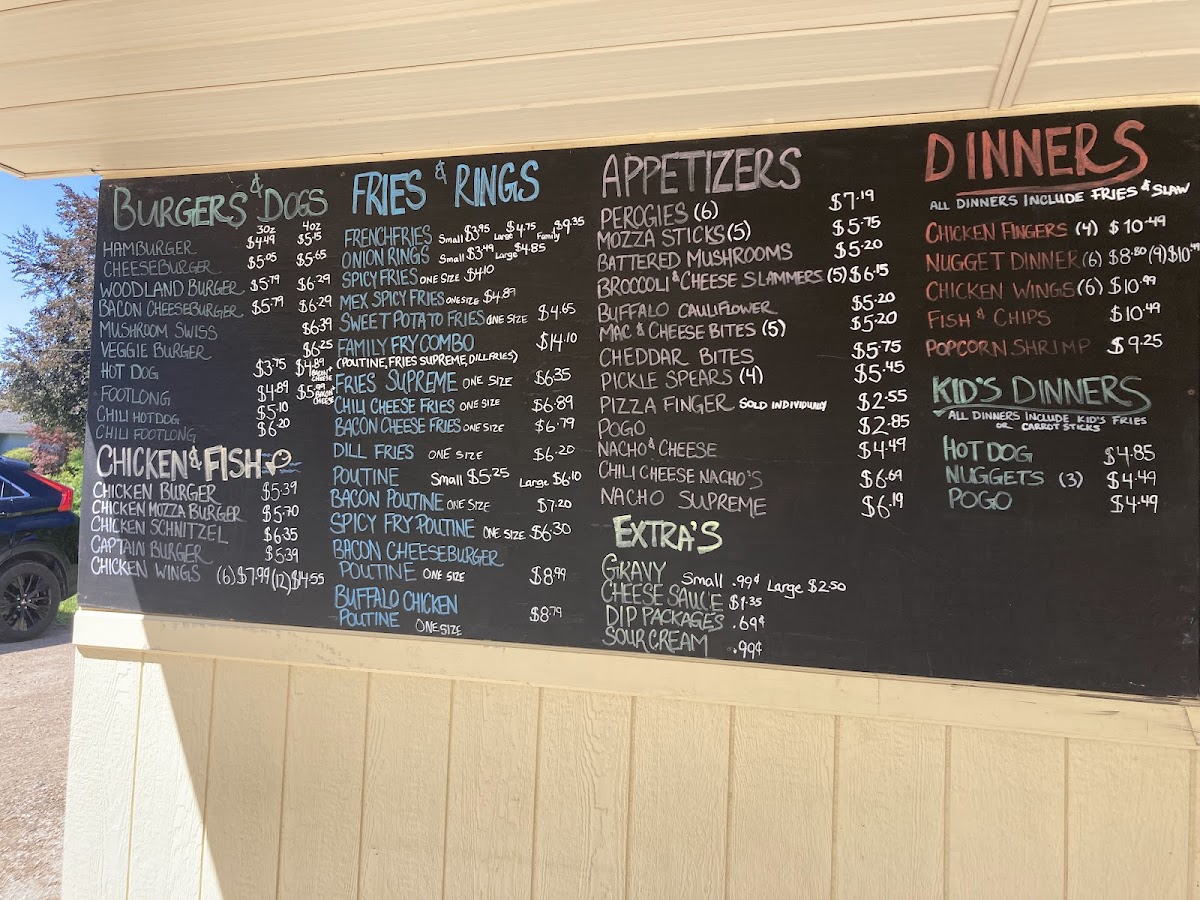 BURGERS & DOGS
3oz 4oz
HAMBURGER $4.49 $5.15
CHEESEBURGER $5.05 $5.65
WOODLAND BURGER $5.79 $6.29
BACON CHEESEBURGER $5.79 $6.29
MUSHROOM SWISS $6.39
VEGGIE BURGER $6.25
HOT DOG $3.75 $4.89 BACON + CHEESE
FOOTLONG $4.89 BACON + CHEESE
CHILI HOTDOG $5.10
CHILI FOOTLONG $6.20
CHICKEN & FISH
CHICKEN BURGER $5.39
CHICKEN MOZZA BURGER $5.70
CHICKEN SCHNITZEL $6.35
CAPTAIN BURGER $5.39
CHICKEN WINGS (6) $7.99 (12)
FRIES & RINGS
FRENCHFRIES Small $3.95 Large $4.75 Family $9.35
ONION RINGS Small $3.49 Large $4.85
SPICY FRIES ONE SIZE $4.10
MEX SPICY FRIES ONE SIZE $4.89
SWEET POTATO FRIES ONE SIZE $4.65
FAMILY FRY COMBO $14.10
(POUTINE, FRIES SUPREME, DILL FRIES)
FRIES SUPREME ONE SIZE $6.35
CHILI CHEESE FRIES ONE SIZE $6.89
BACON CHEESE FRIES ONE SIZE $6.79
DILL FRIES ONE SIZE $6.20
POUTINE Small $5.25 Large $6.10
BACON POUTINE ONE SIZE $7.20
SPICY FRY POUTINE ONE SIZE $6.30
BACON CHEESEBURGER
POUTINE ONE SIZE $8.99
BUFFALO CHICKEN
POUTINE ONE SIZE $8.79
APPETIZERS
PEROGIES (6) $7.19
MOZZA STICKS (5) $5.75
BATTERED MUSHROOMS $5.20
BROCCOLI & CHEESE SLAMMERS (5) $6.15
BUFFALO CAULIFLOWER $5.20
MAC & CHEESE BITES (5) $5.20
CHEDDAR BITES $5.75
PICKLE SPEARS (4) $5.45
PIZZA FINGER SOLD INDIVIDUALLY $2.55
POGO $2.85
NACHO & CHEESE $4.49
CHILI CHEESE NACHO'S $6.69
NACHO SUPREME $6.19
EXTRA'S
GRAVY Small .99¢ Large $2.50
CHEESE SAUCE $1.35
DIP PACKAGES .69¢
SOUR CREAM .99¢
DINNERS
ALL DINNERS INCLUDE FRIES & SLAW
CHICKEN FINGERS (4) $10.49
NUGGET DINNER (6) $8.80 (9) $10.49
CHICKEN WINGS (6) $10.99
FISH & CHIPS $10.49
POPCORN SHRIMP $9.25
KID'S DINNERS
ALL DINNERS INCLUDE KID'S FRIES
OR CARROT STICKS
HOT DOG $4.85
NUGGETS (3) $4.49
POGO $4.49